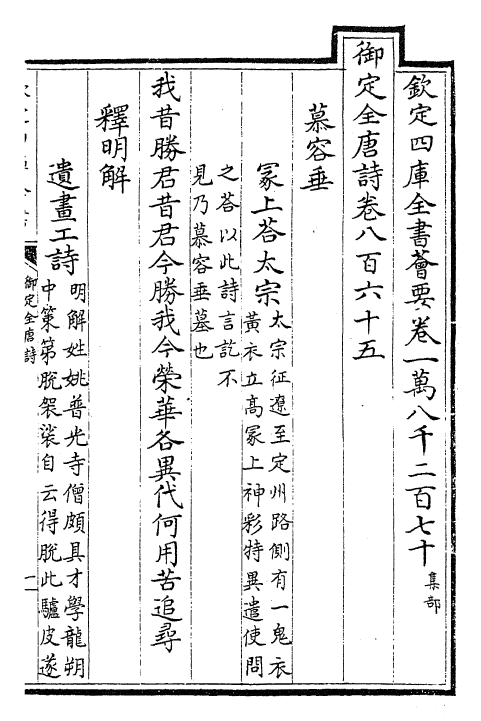 欽定四庫全書薈要卷一萬八千二百七十
集部
御定全唐詩卷八百六十五
慕容垂
冢上荅太宗
太宗征遼至定州路側有一鬼衣
黃衣立高冢上神彩特異遣使問
之荅以此詩言訖不
見乃慕容垂墓也
我昔勝君昔君今勝我今榮華各異代何用苦追尋
釋明解
遺畫工詩
明解姓姚普光寺僧頗具才學龍朔
中策第脫袈裟自云得脫此驢皮遂
御定全唐詩
一